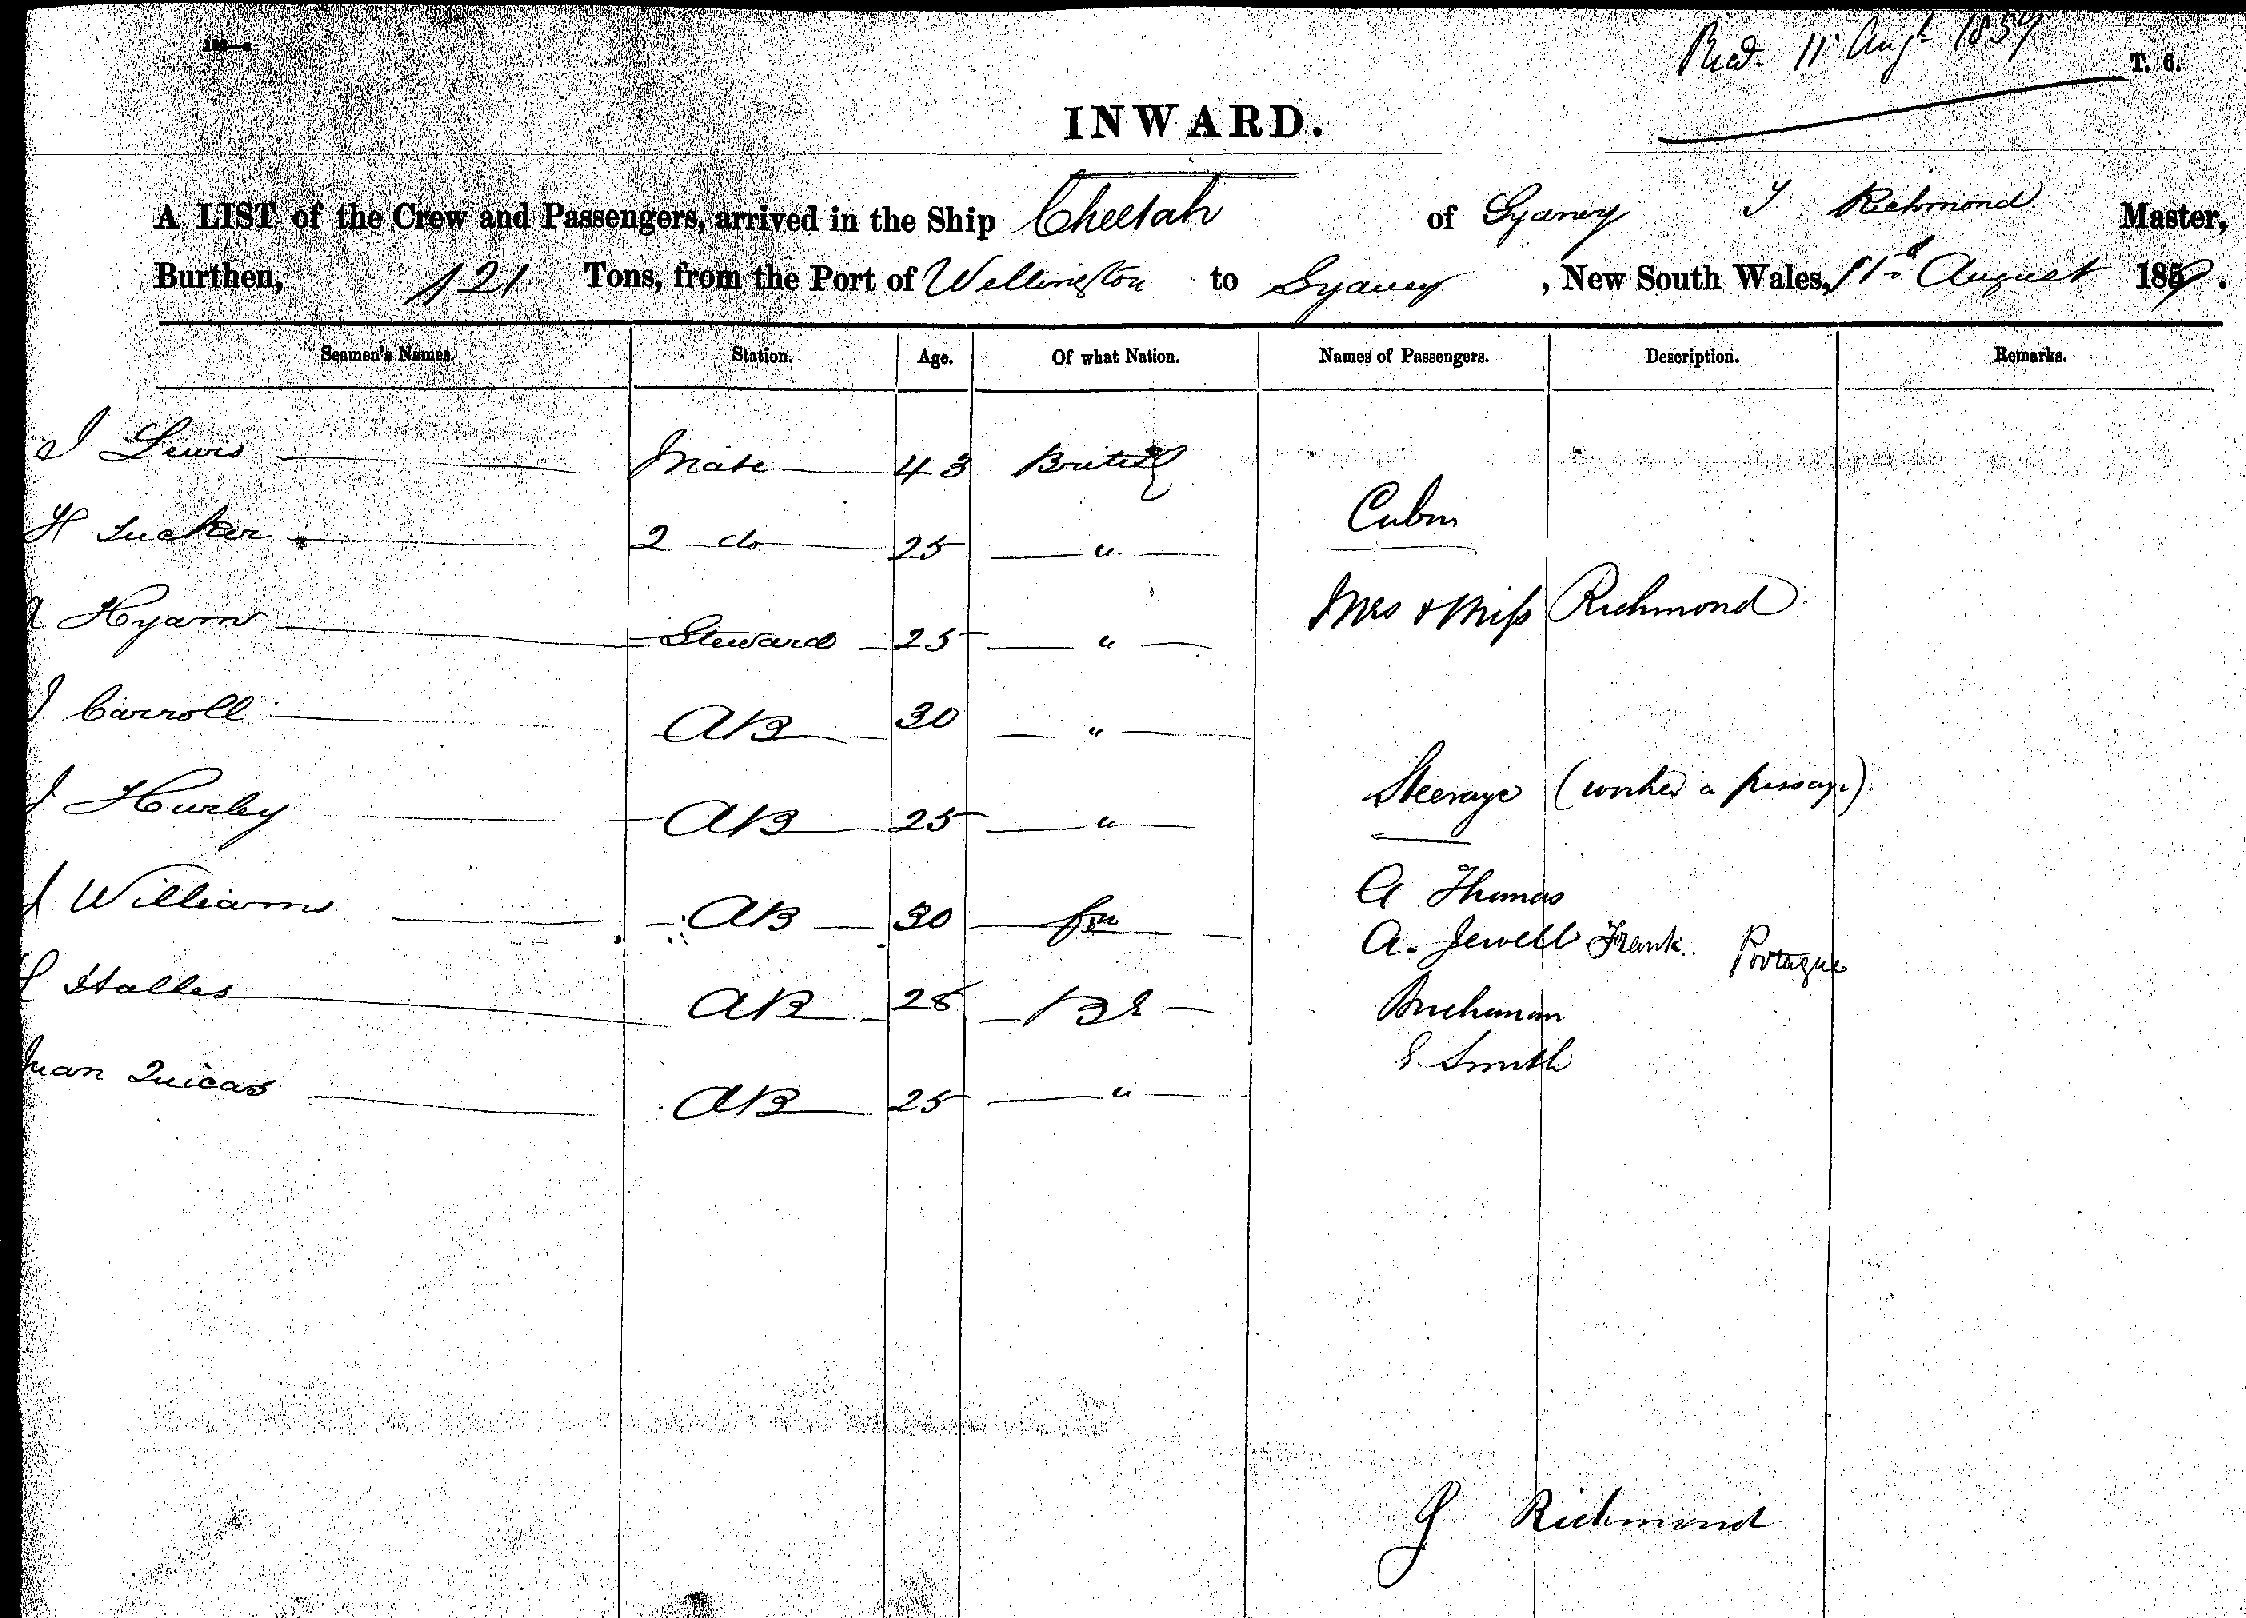 Recd. 11 Augt 1859
T. 6.
INWARD.
A LIST of the Crew and Passengers, arrived in the Ship Cheetah of Sydney J Richmond Master,
Burthen, 121 Tons, from the Port of Wellington to Sydney, New South Wales, 11th August 1859.
Seamen's Names. Station. Age. Of what Nation. Names of Passengers. Description. Remarks.
J Lewis Mate 43 British
H Tucker 2 do 25 "
Cabin
Hyam Steward 25 "
Mrs & Miss Richmond
J Carroll AB 30 "
Steerage (worked a passage)
J Hurley AB 25 "
A Thomas
J Williams AB 30
A. Jewell Frank. Portugue
AB 25 Br
Buchanan
E Smith
Juan AB 25 "
J Richmond